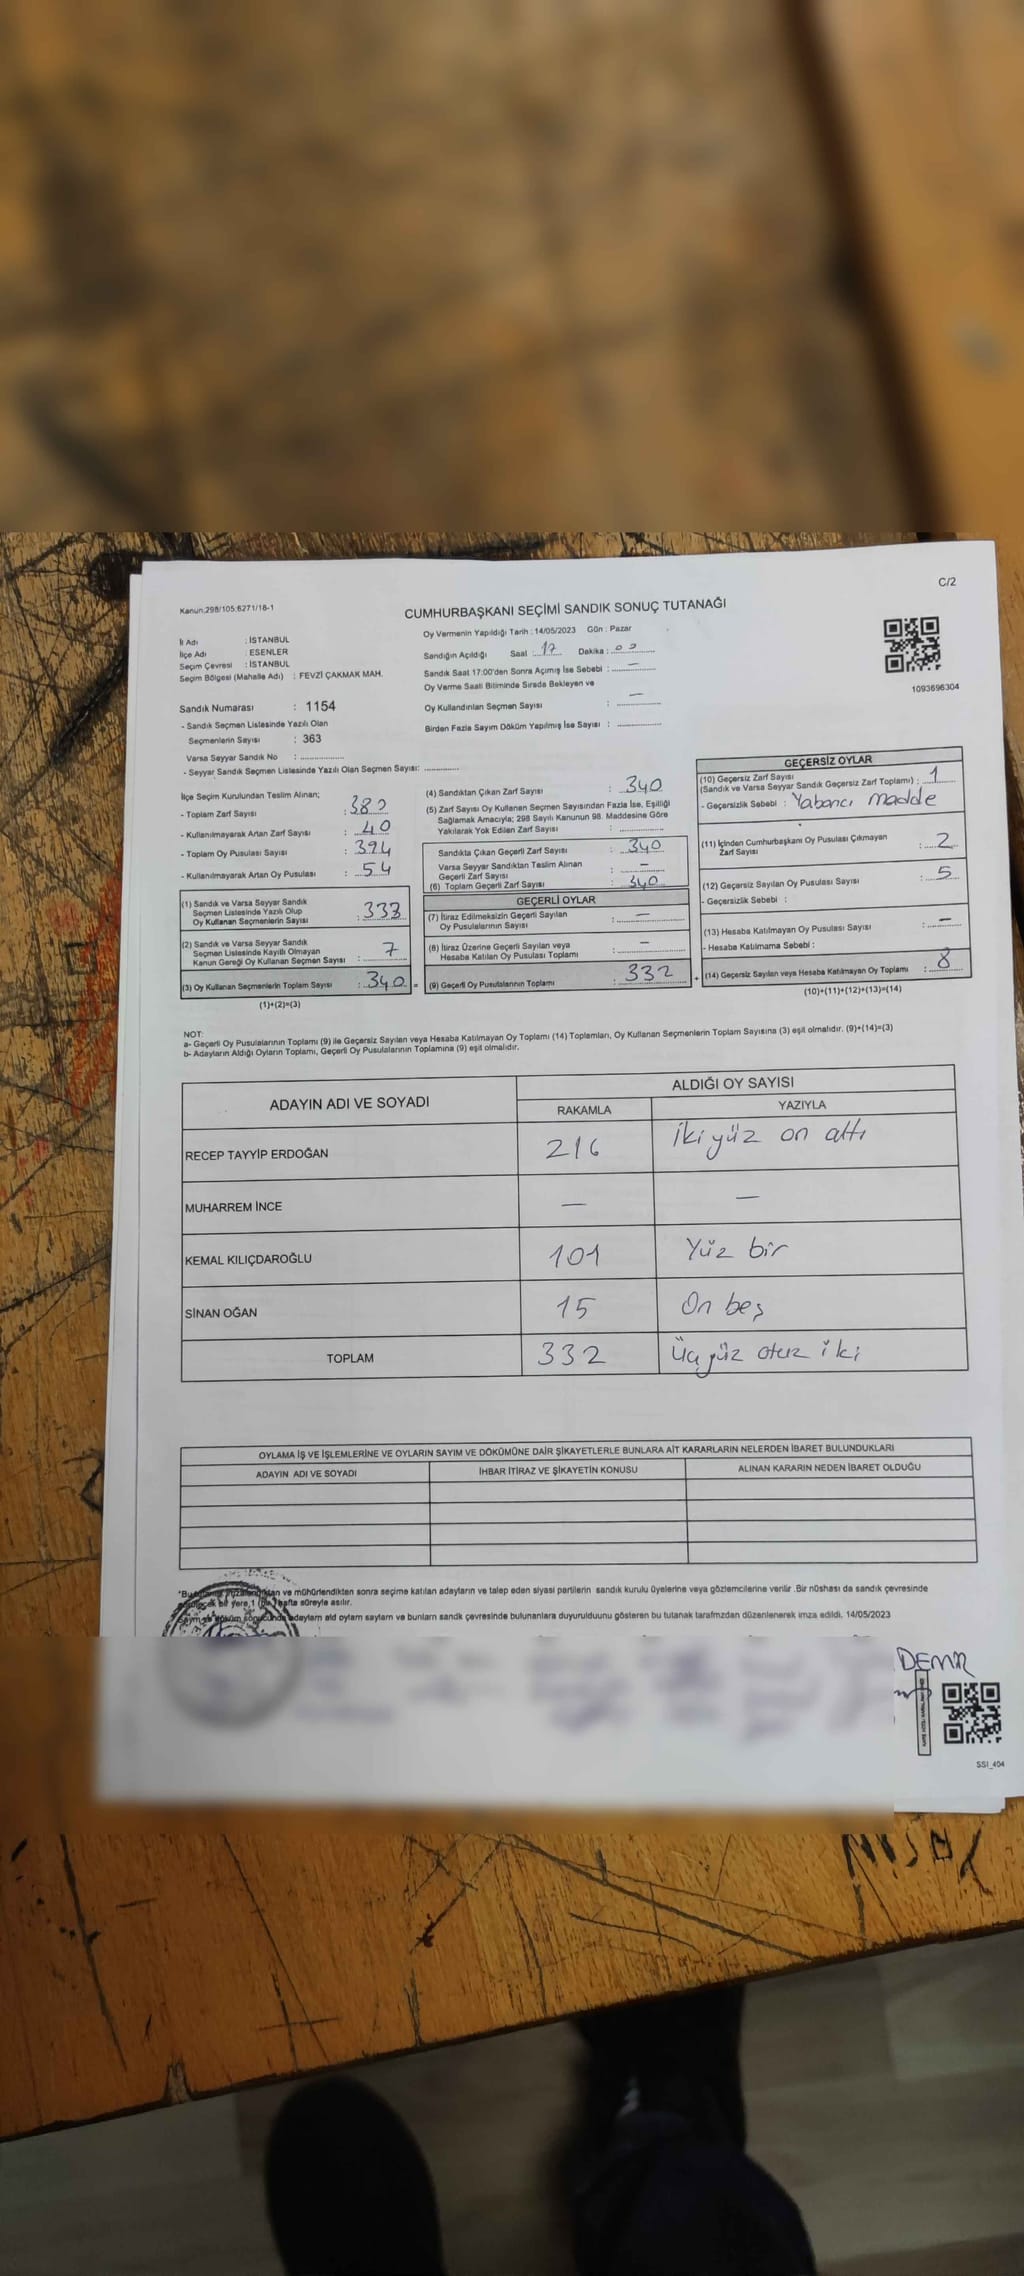 C/2
Kanun:298/105;6271/18-1
CUMHURBAŞKANI SEÇİMİ SANDIK SONUÇ TUTANAĞI
İl Adı : İSTANBUL
İlçe Adı : ESENLER
Seçim Çevresi : İSTANBUL
Seçim Bölgesi (Mahalle Adı) : FEVZİ ÇAKMAK MAH.
Oy Vermenin Yapıldığı Tarih : 14/05/2023 Gün : Pazar
Sandığın Açıldığı Saat : 17 Dakika : 00
Sandık Saat 17:00'den Sonra Açımış İse Sebebi : —
Oy Verme Saati Bitiminde Sırada Bekleyen ve
Oy Kullandırılan Seçmen Sayısı : —
Birden Fazla Sayım Döküm Yapılmış İse Sayısı :
1093696304
Sandık Numarası : 1154
- Sandık Seçmen Listesinde Yazılı Olan
Seçmenlerin Sayısı : 363
Varsa Seyyar Sandık No :
- Seyyar Sandık Seçmen Listesinde Yazılı Olan Seçmen Sayısı:
İlçe Seçim Kurulundan Teslim Alınan;
- Toplam Zarf Sayısı :
- Kullanılmayarak Artan Zarf Sayısı : 40
- Toplam Oy Pusulası Sayısı : 394
- Kullanılmayarak Artan Oy Pusulası : 54
(1) Sandık ve Varsa Seyyar Sandık
Seçmen Listesinde Yazılı Olup
Oy Kullanan Seçmenlerin Sayısı : 333
(2) Sandık ve Varsa Seyyar Sandık
Seçmen Listesinde Kayıtlı Olmayan
Kanun Gereği Oy Kullanan Seçmen Sayısı : 7
(3) Oy Kullanan Seçmenlerin Toplam Sayısı : 340
(1)+(2)=(3)
(4) Sandıktan Çıkan Zarf Sayısı : 340
(5) Zarf Sayısı Oy Kullanan Seçmen Sayısından Fazla İse, Eşitliği
Sağlamak Amacıyla; 298 Sayılı Kanunun 98. Maddesine Göre
Yakılarak Yok Edilen Zarf Sayısı :
Sandıkta Çıkan Geçerli Zarf Sayısı : 340
Varsa Seyyar Sandıktan Teslim Alınan
Geçerli Zarf Sayısı : —
(6) Toplam Geçerli Zarf Sayısı : 340
GEÇERLİ OYLAR
(7) İtiraz Edilmeksizin Geçerli Sayılan
Oy Pusulalarının Sayısı : —
(8) İtiraz Üzerine Geçerli Sayılan veya
Hesaba Katılan Oy Pusulası Toplamı : —
(9) Geçerli Oy Pusulalarının Toplamı : 332
GEÇERSİZ OYLAR
(10) Geçersiz Zarf Sayısı
(Sandık ve Varsa Seyyar Sandık Geçersiz Zarf Toplamı) : 1
- Geçersizlik Sebebi : Yabancı madde
(11) İçinden Cumhurbaşkanı Oy Pusulası Çıkmayan
Zarf Sayısı : 2
(12) Geçersiz Sayılan Oy Pusulası Sayısı : 5
- Geçersizlik Sebebi :
(13) Hesaba Katılmayan Oy Pusulası Sayısı : —
- Hesaba Katılmama Sebebi :
(14) Geçersiz Sayılan veya Hesaba Katılmayan Oy Toplamı : 8
(10)+(11)+(12)+(13)=(14)
NOT:
a- Geçerli Oy Pusulalarının Toplamı (9) ile Geçersiz Sayılan veya Hesaba Katılmayan Oy Toplamı (14) Toplamları, Oy Kullanan Seçmenlerin Toplam Sayısına (3) eşit olmalıdır. (9)+(14)=(3)
b- Adayların Aldığı Oyların Toplamı, Geçerli Oy Pusulalarının Toplamına (9) eşit olmalıdır.
ADAYIN ADI VE SOYADI
ALDIĞI OY SAYISI
RAKAMLA YAZIYLA
RECEP TAYYİP ERDOĞAN 216 İki yüz on altı
MUHARREM İNCE — —
KEMAL KILIÇDAROĞLU 101 Yüz bir
SİNAN OĞAN 15 On beş
TOPLAM 332 Üç yüz otuz iki
OYLAMA İŞ VE İŞLEMLERİNE VE OYLARIN SAYIM VE DÖKÜMÜNE DAİR ŞİKAYETLERLE BUNLARA AİT KARARLARIN NELERDEN İBARET BULUNDUKLARI
ADAYIN ADI VE SOYADI İHBAR İTİRAZ VE ŞİKAYETİN KONUSU ALINAN KARARIN NEDEN İBARET OLDUĞU
ve mühürlendikten sonra seçime katılan adayların ve talep eden siyasi partilerin sandık kurulu üyelerine veya gözlemcilerine verilir .Bir nüshası da sandık çevresinde
bir yere 1 hafta süreyle asılır.
adayların aldı oyların sayların ve bunların sandk çevresinde bulunanlara duyurulduunu gösteren bu tutanak tarafmzdan düzenlenerek imza edildi. 14/05/2023
DEMİR
SSI_404